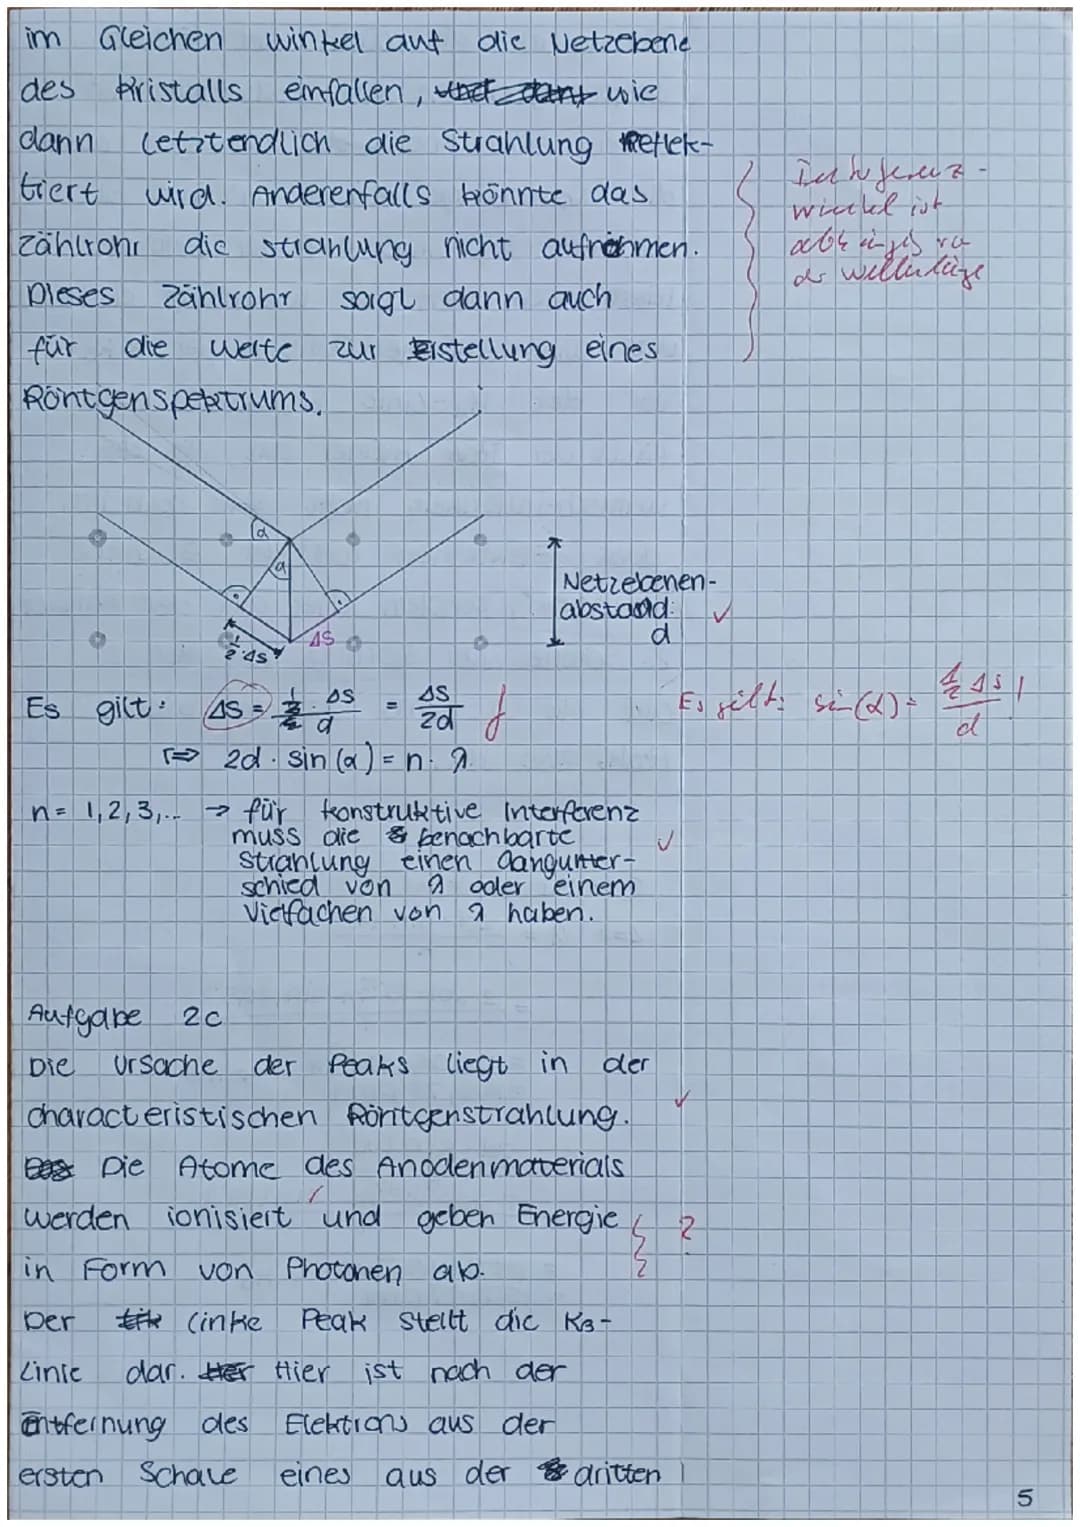 im Gleichen winkel auf die Netzebene
des Kristalls einfallen, wie
dann letztendlich die Strahlung Reflek-
tiert wird. Anderenfalls könnte das
Zählrohr die strahlung nicht aufnehmen.
Interferenz-
winkel ist
abhängig von
der Wellenlänge
Dieses Zählrohr sorgt dann auch
für die Werte zur Erstellung eines
Röntgenspektrums.
α
α
Netzebenen-
abstand:
d
½·ΔS
ΔS
Es gilt: ΔS = ½·ΔS/d = ΔS/2d f
Es gilt: sin(α) = ½ΔS/d !
⇒ 2d · sin(α) = n · λ
n = 1,2,3,... → für konstruktive Interferenz
muss die benachbarte
Strahlung einen Gangunter-
schied von λ oder einem
Vielfachen von λ haben.
Aufgabe 2c
Die Ursache der Peaks liegt in der
characteristischen Röntgenstrahlung.
Die Atome des Anodenmaterials
werden ionisiert und geben Energie ?
in Form von Photonen ab.
Der linke Peak stellt die Kβ-
Linie dar. Hier ist nach der
Entfernung des Elektrons aus der
ersten Schale eines aus der dritten
5